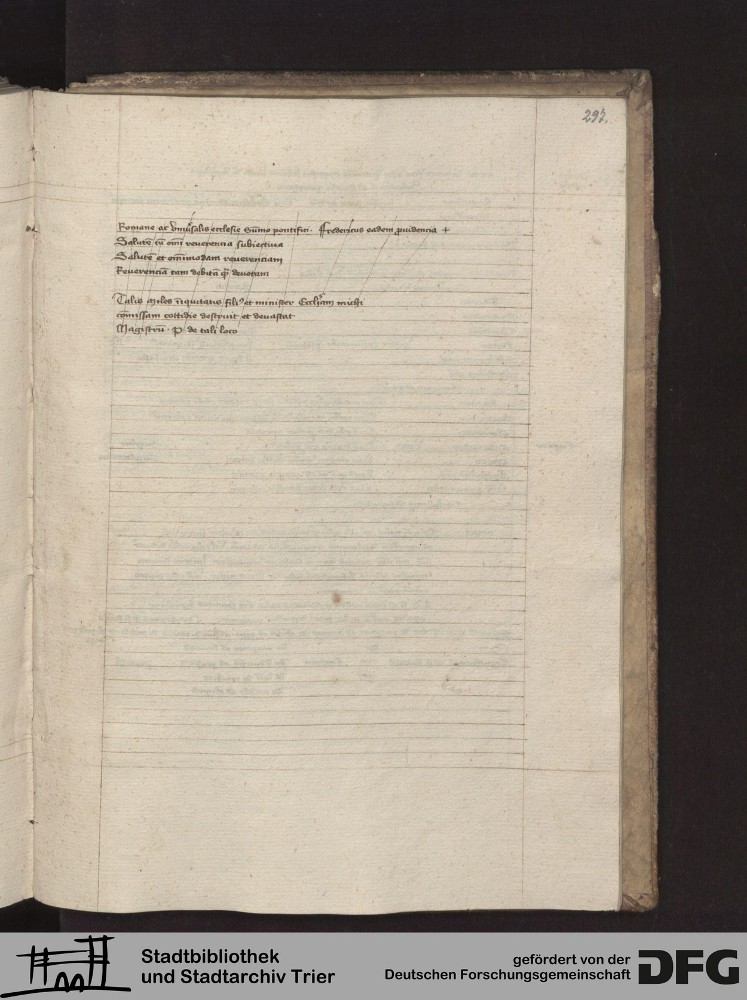 297.
Romane ac vniu'salis ecclesie Sūmo pontifici · Fredericus eadem puidencia +
Salutē cū omī reuerencia subiectiua
Salutē et om̄imodam reuerenciam
Reuerenciā tam debitā q̄ deuotam
Talis miles iniquitatis fili9 et minister Eccl'iam michi
cōmissam cottidie destruit et deuastat
Magistrū · P · de tali loco
Stadtbibliothek
und Stadtarchiv Trier
gefördert von der
Deutschen Forschungsgemeinschaft
DFG